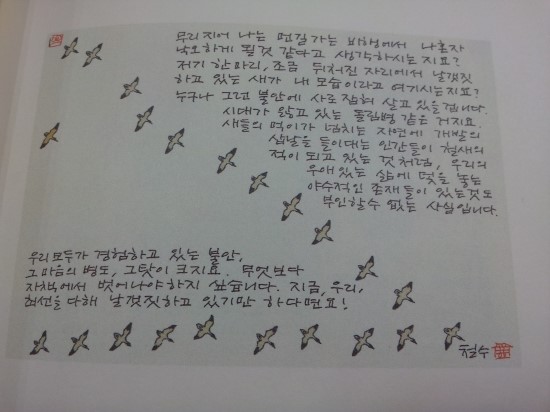 무리지어 나는 먼길가는 비행에서 나혼자
낙오하게 될것 같다고 생각하시는 지요?
저기 한마리, 조금 뒤처진 자리에서 날갯짓
하고 있는 새가 내 모습이라고 여기시는지요?
누구나 그런 불안에 사로잡혀 살고 있을겝니다.
시대가 앓고 있는 돌림병 같은 거지요.
새들의 먹이가 넘치는 자연에 개발의
삽날을 들이대는 인간들이 철새의
적이 되고 있는 것처럼, 우리의
우애있는 삶에 덫을 놓는
야수적인 존재들이 있는것도
부인할수 없는 사실입니다.
우리모두가 경험하고 있는 불안,
그마음의 병도, 그탓이 크지요. 무엇보다
자책에서 벗어나야하지 싶습니다. 지금, 우리,
최선을 다해 날갯짓하고 있기만 하다면요!
철수